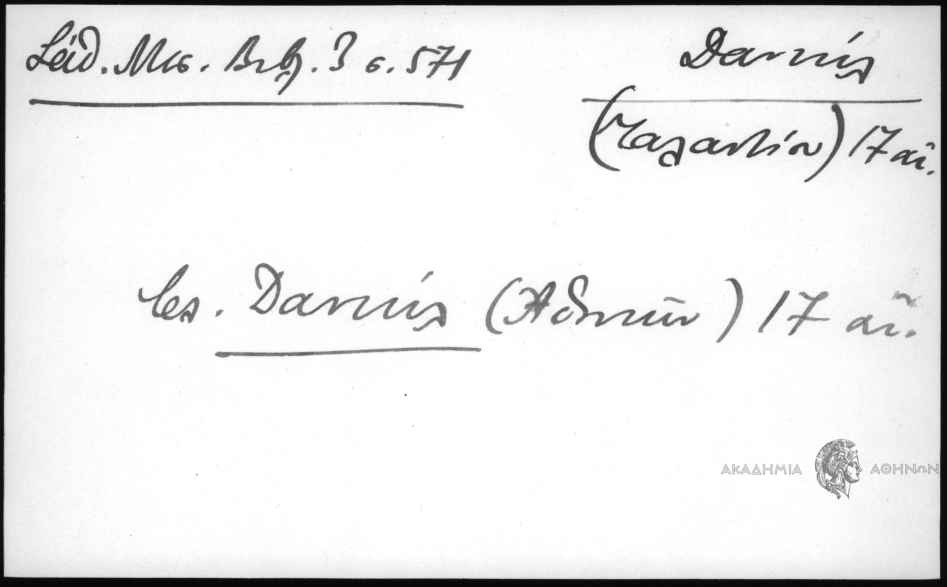 Σάθ. Μεσ. Βιβ. 3 σ. 571
Δανιήλ
(Γαλαντίου) 17 αἰ.
βλ. Δανιήλ (Ἀθηνῶν) 17 αἰ.
ΑΚΑΔΗΜΙΑ ΑΘΗΝΩΝ